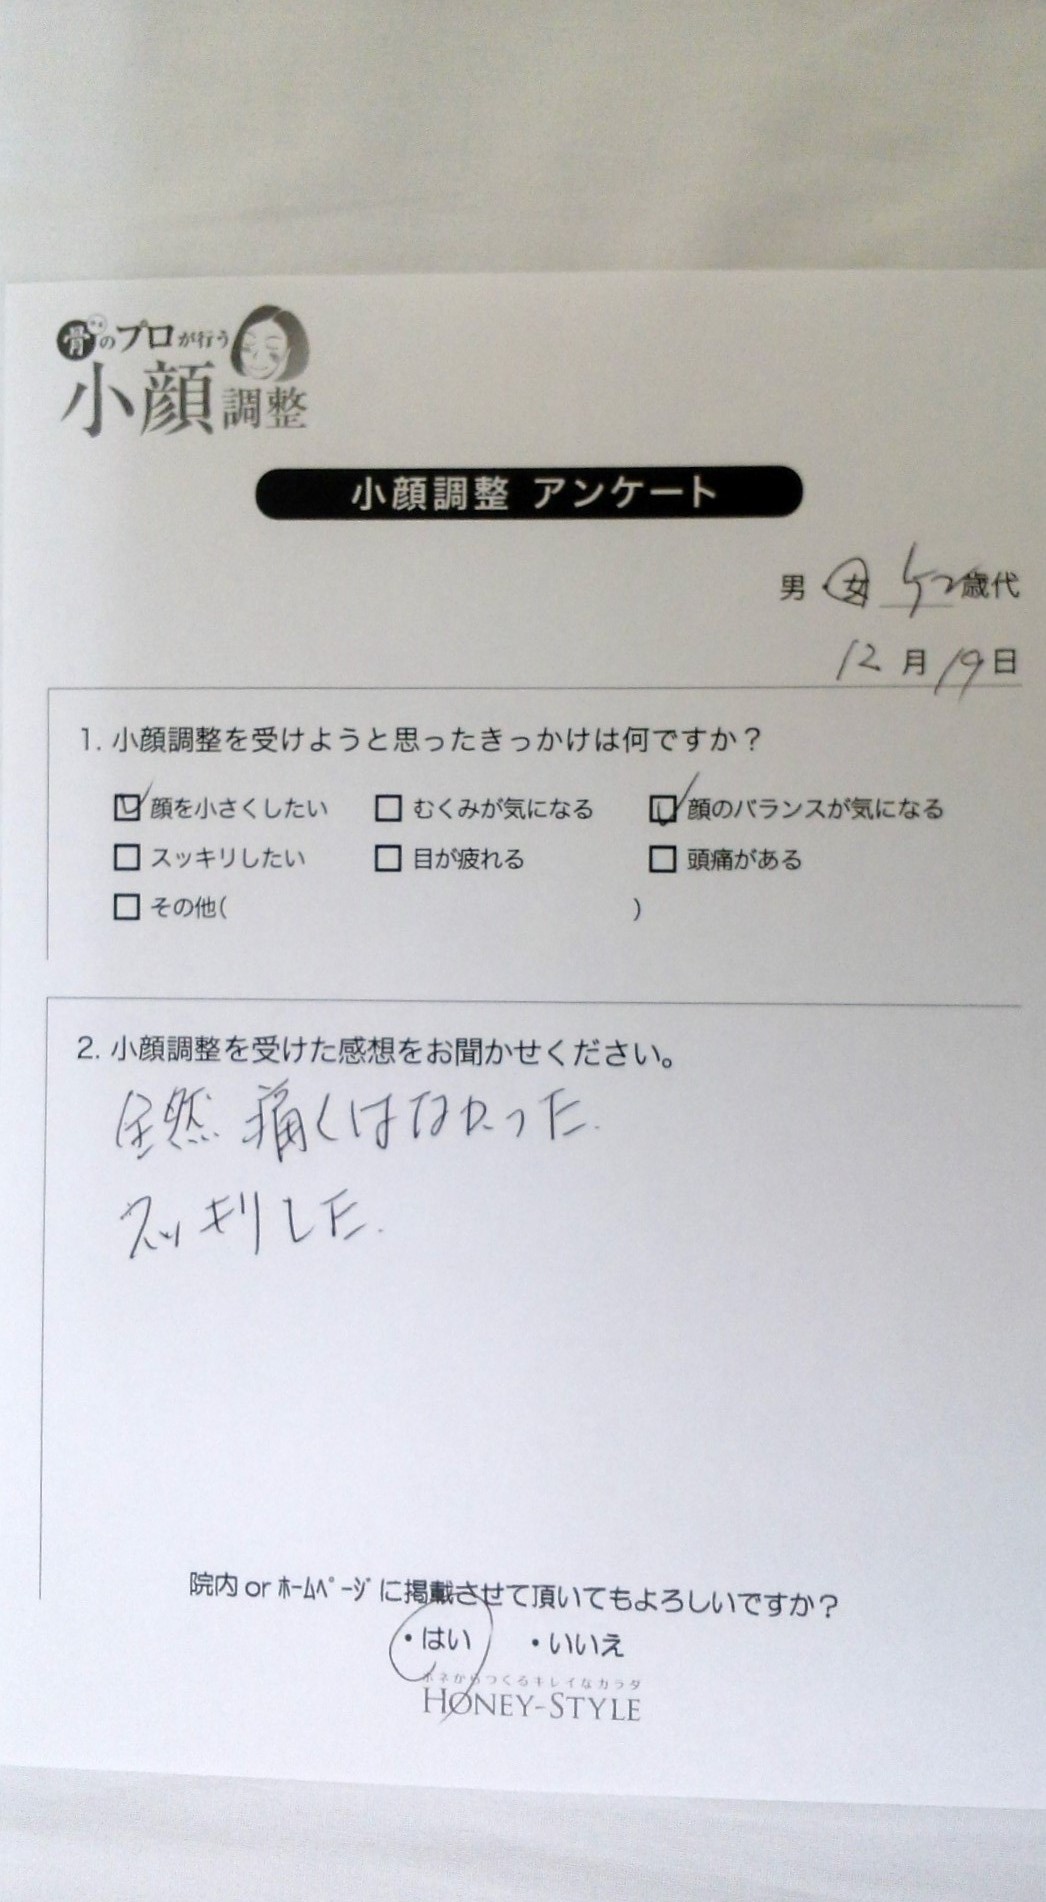 骨のプロが行う
小顔調整
小顔調整 アンケート
男・女 52歳代
12月19日
1. 小顔調整を受けようと思ったきっかけは何ですか？
顔を小さくしたい むくみが気になる 顔のバランスが気になる
スッキリしたい 目が疲れる 頭痛がある
その他( )
2. 小顔調整を受けた感想をお聞かせください。
全然 痛くはなかった.
スッキリした.
院内 or ﾎｰﾑﾍﾟｰｼﾞ に掲載させて頂いてもよろしいですか？
・はい ・いいえ
ホネからつくるキレイなカラダ
HONEY-STYLE